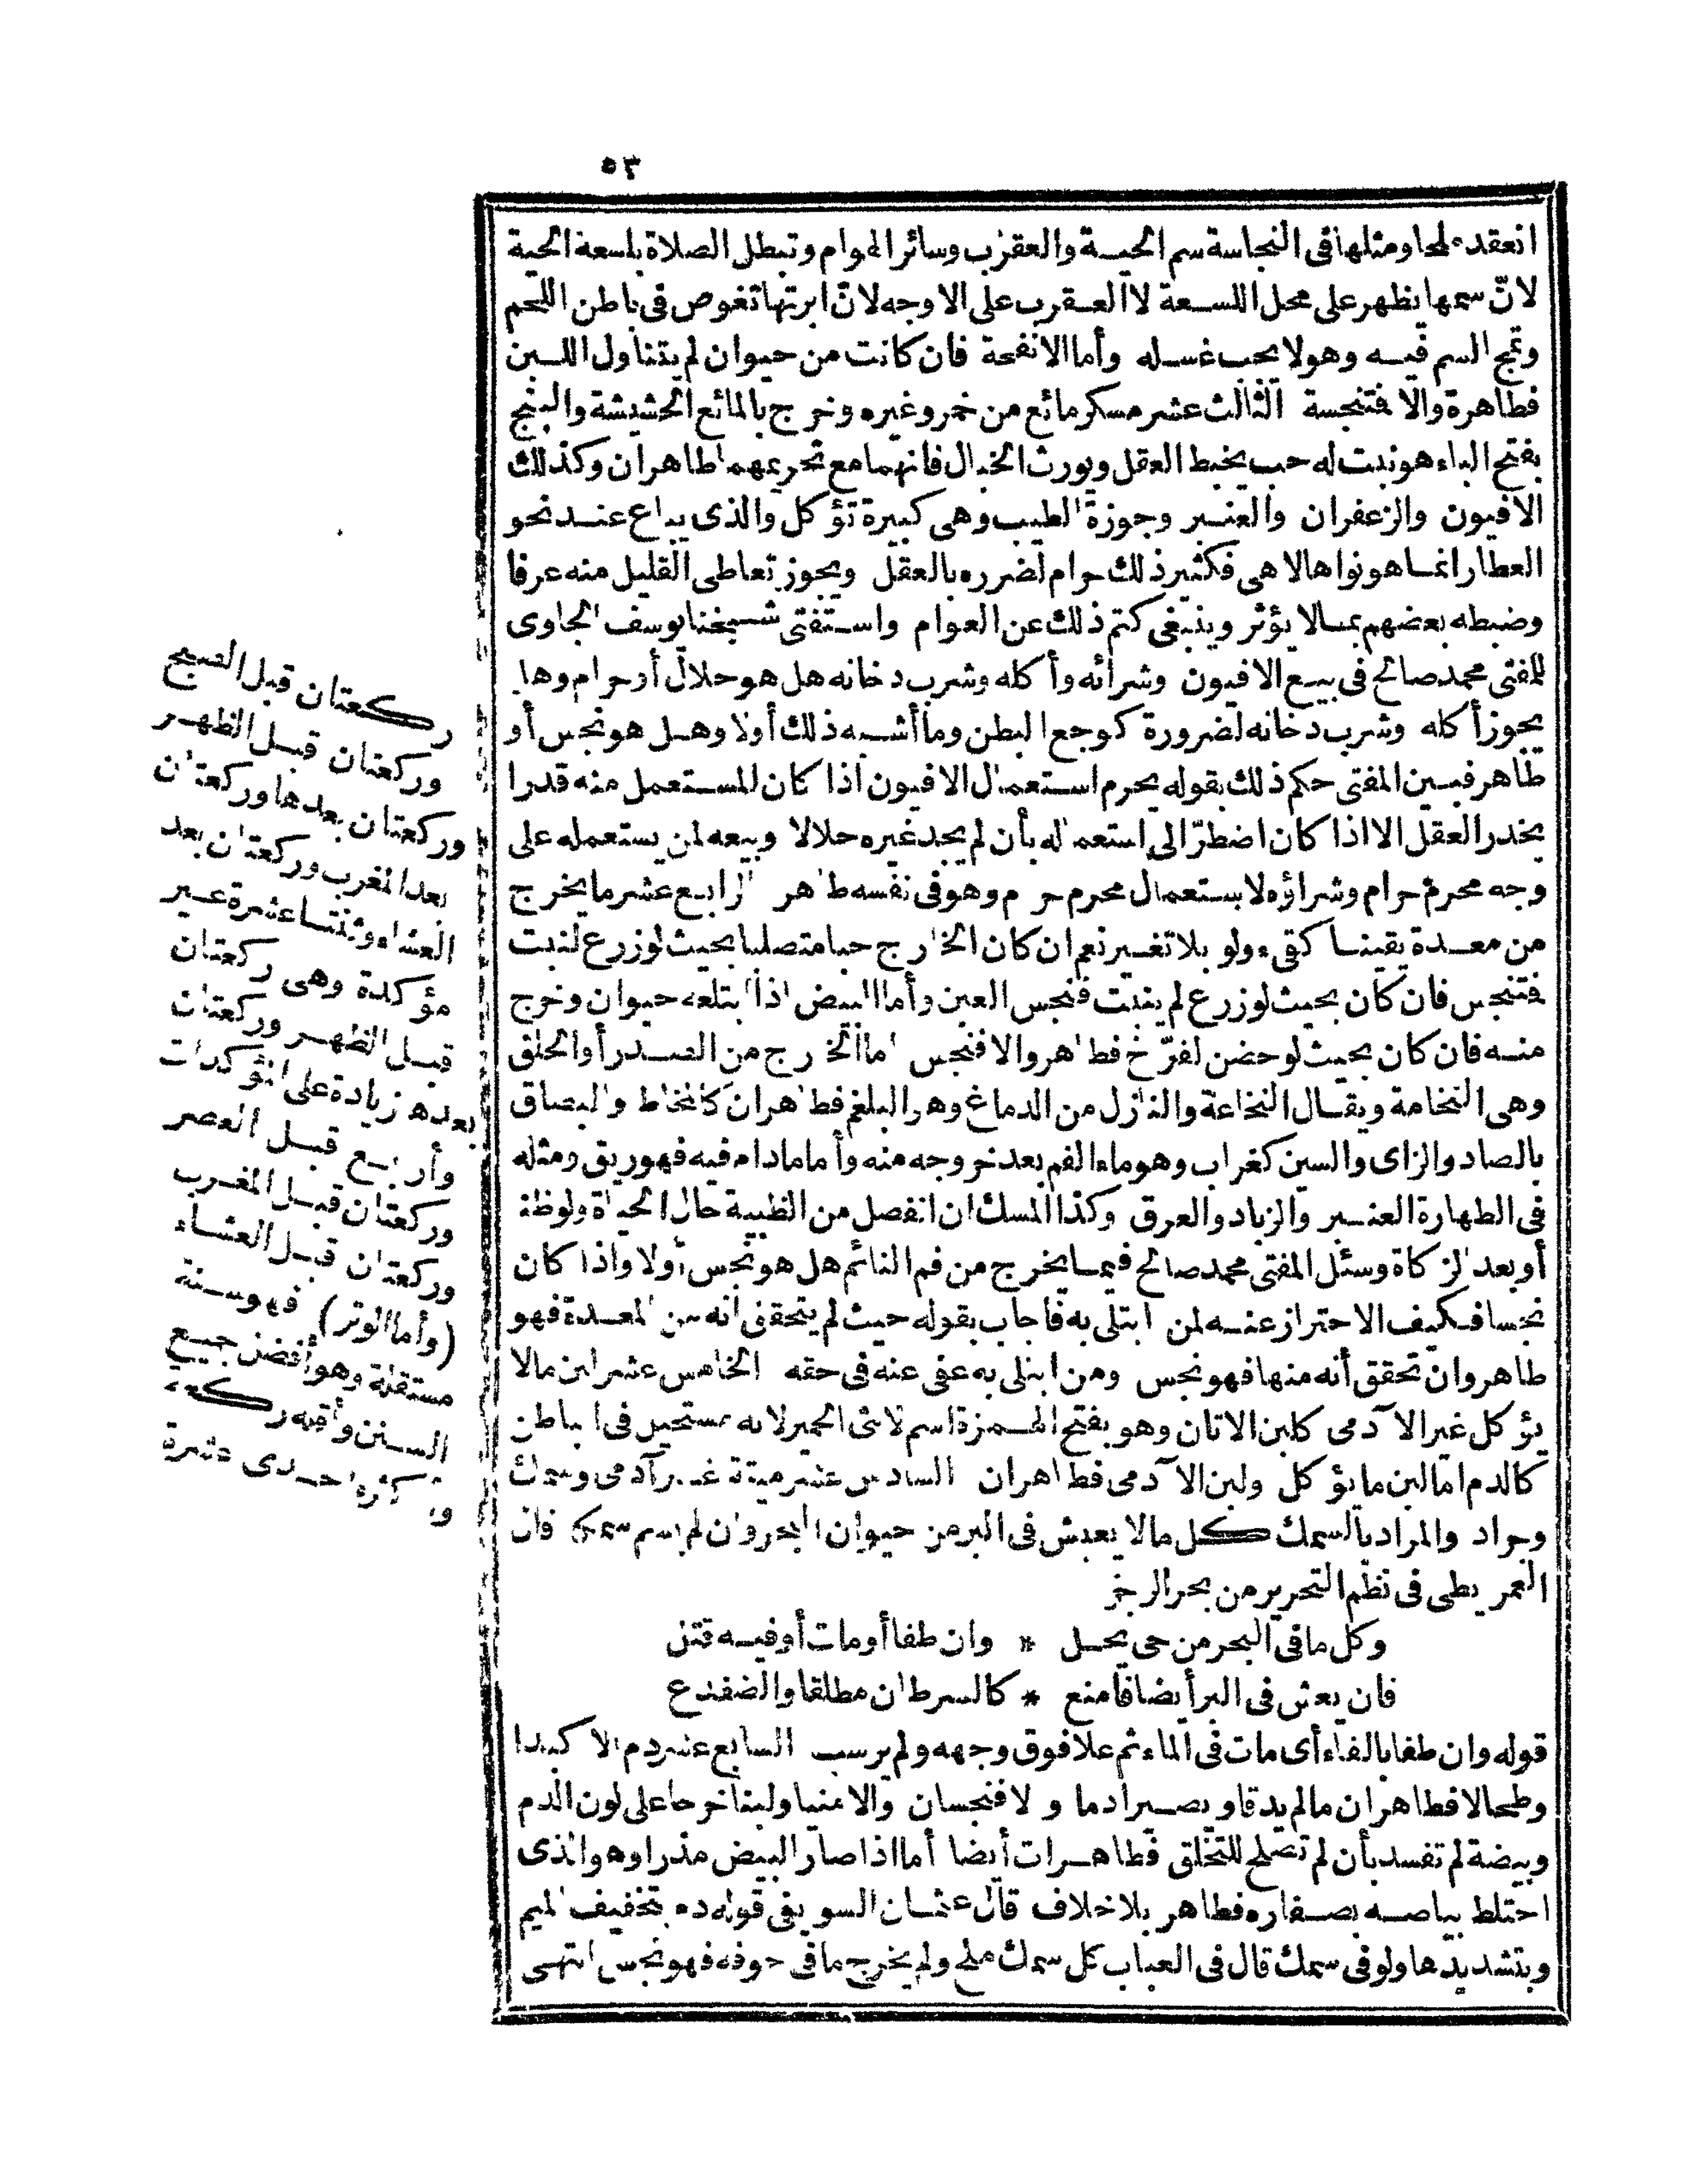 ٥٣
انعقد ملحا ومثلها فى النجاسة سم الحيــة والعقرب وسائر الهوام وتبطل الصلاة بلسعة الحية
لانّ سمها يظهر على محل اللسـعة لا العـقرب على الاوجه لانّ ابرتها تغوص فى باطن اللحم
وتمج السم فيــه وهو لا يجب غسـله وأما الانفحة فان كانت من حيوان لم يتناول اللـبن
فطاهرة والا فتنجسة الثالث عشر مسكر مائع من خمر وغيره وخرج بالمائع الحشيشة والبنج
بفتح الباء هو نبت له حب يخبط العقل ويورث الخبال فانهما مع تحريمهما طاهران وكذلك
الافيون والزعفران والعنـبر وجوزة الطيب وهى كبيرة تؤكل والذى يباع عنــد نحو
العطار انمـا هو نواها لا هى فكثير ذلك حرام لضرره بالعقل ويجوز تعاطى القليل منه عرفا
وضبطه بعضهم بمـالا يؤثر وينبغى كتم ذلك عن العوام واسـتفتى شـيخنا يوسف الجاوى
للمفتى محمد صالح فى بيـع الافيون وشرائه وأكله وشرب دخانه هل هو حلال أو حرام وهل
يجوز أكله وشرب دخانه لضرورة كوجع البطن وما أشـبه ذلك أولا وهـل هو نجس أو
طاهر فبـين المفتى حكم ذلك بقوله يحرم استعمال الافيون اذا كان المستعمل منه قدرا
يخدر العقل الا اذا كان اضطرّ الى استعماله بأن لم يجد غيره حلالا وبيعه لمن يستعمله على
وجه محرم حرام وشراؤه لاستعمال محرم حرام وهو فى نفسه طاهر الرابـع عشر ما يخرج
من معـدة يقينـا كقىء ولو بلا تغـير نعم ان كان الخارج حبا متصلبا بحيث لو زرع لنبت
فتنجس فان كان بحيث لو زرع لم ينبت فنجس العين وأما البيض اذا ابتلعه حيوان وخرج
منـه فان كان بحيث لو حضن لفرّخ فطاهر والا فنجس أما الخارج من الصـدر أو الحلق
وهى النخامة ويقـال النخاعة والنازل من الدماغ وهو البلغم فطاهران كالمخاط والبصاق
بالصاد والزاى والسين كغراب وهو ماء الفم بعد خروجه منه وأما ما دام فيه فهو ريق ومثله
فى الطهارة العنـبر والزباد والعرق وكذا المسك ان انفصل من الظبية حال الحياة ولو ظنا
أو بعد الزكاة وسئل المفتى محمد صالح فيمـا يخرج من فم النائم هل هو نجس أولا واذا كان
نجسا فـكيف الاحتراز عنـه لمن ابتلى به فأجاب بقوله حيث لم يتحقق أنه من المعـدة فهو
طاهر وان تحقق أنه منها فهو نجس ومن ابتلى به عفى عنه فى حقه الخامس عشر لبن مالا
يؤكل غير الآدمى كلبن الاتان وهو بفتح الهـمزة اسم لانثى الحمير لانه مستحيل فى الباطن
كالدم أما لبن ما يؤكل ولبن الآدمى فطاهران السادس عشر ميتة غـير آدمى وسمك
وجراد والمراد بالسمك كـل مالا يعيش فى البر من حيوان البحر وان لم يسم سمكا قال
العمريطى فى نظم التحرير من بحر الرجز
وكل ما فى البحر من حى يحـل * وان طفا أو مات أو فيـه قتل
فان يعش فى البر أيضا فامنع * كالسرطان مطلقا والضفدع
قوله وان طفا بالفاء أى مات فى الماء ثم علا فوق وجهه ولم يرسب السابع عشر دم الا كبدا
وطحالا فطاهران ما لم يدقا ويصـيرا دما والا فنجسان والا منيا ولبنا خرجا على لون الدم
وبيضة لم تفسد بأن لم تصلح للتخلق فطاهـرات أيضا أما اذا صار البيض مذرا وهو الذى
اختلط بياضـه بصـفاره فطاهر بلا خلاف قال عثمـان السويفى قوله دم بتخفيف الميم
وبتشديدها ولو فى سمك قال فى العباب كل سمك ملح ولم يخرج ما فى جوفه فهو نجس انتهـى
ركـعتان قبل الصبح
وركعتان قبـل الظهـر
وركعتان بعدها وركعتان
بعد المغرب وركعتان بعد
العشاء وثنتـا عشرة غـير
مؤكدة وهى ركعتان
قبـل الظهـر وركعتان
بعدها زيادة على المؤكدات
وأربـع قبـل العصر
وركعتان قبـل المغـرب
وركعتان قبـل العشـاء
(وأما الوتر) فهو سـنة
مستقلة وهو أفضل جميـع
السـنن وأقله ركـعة
وأكثره احـدى عشرة